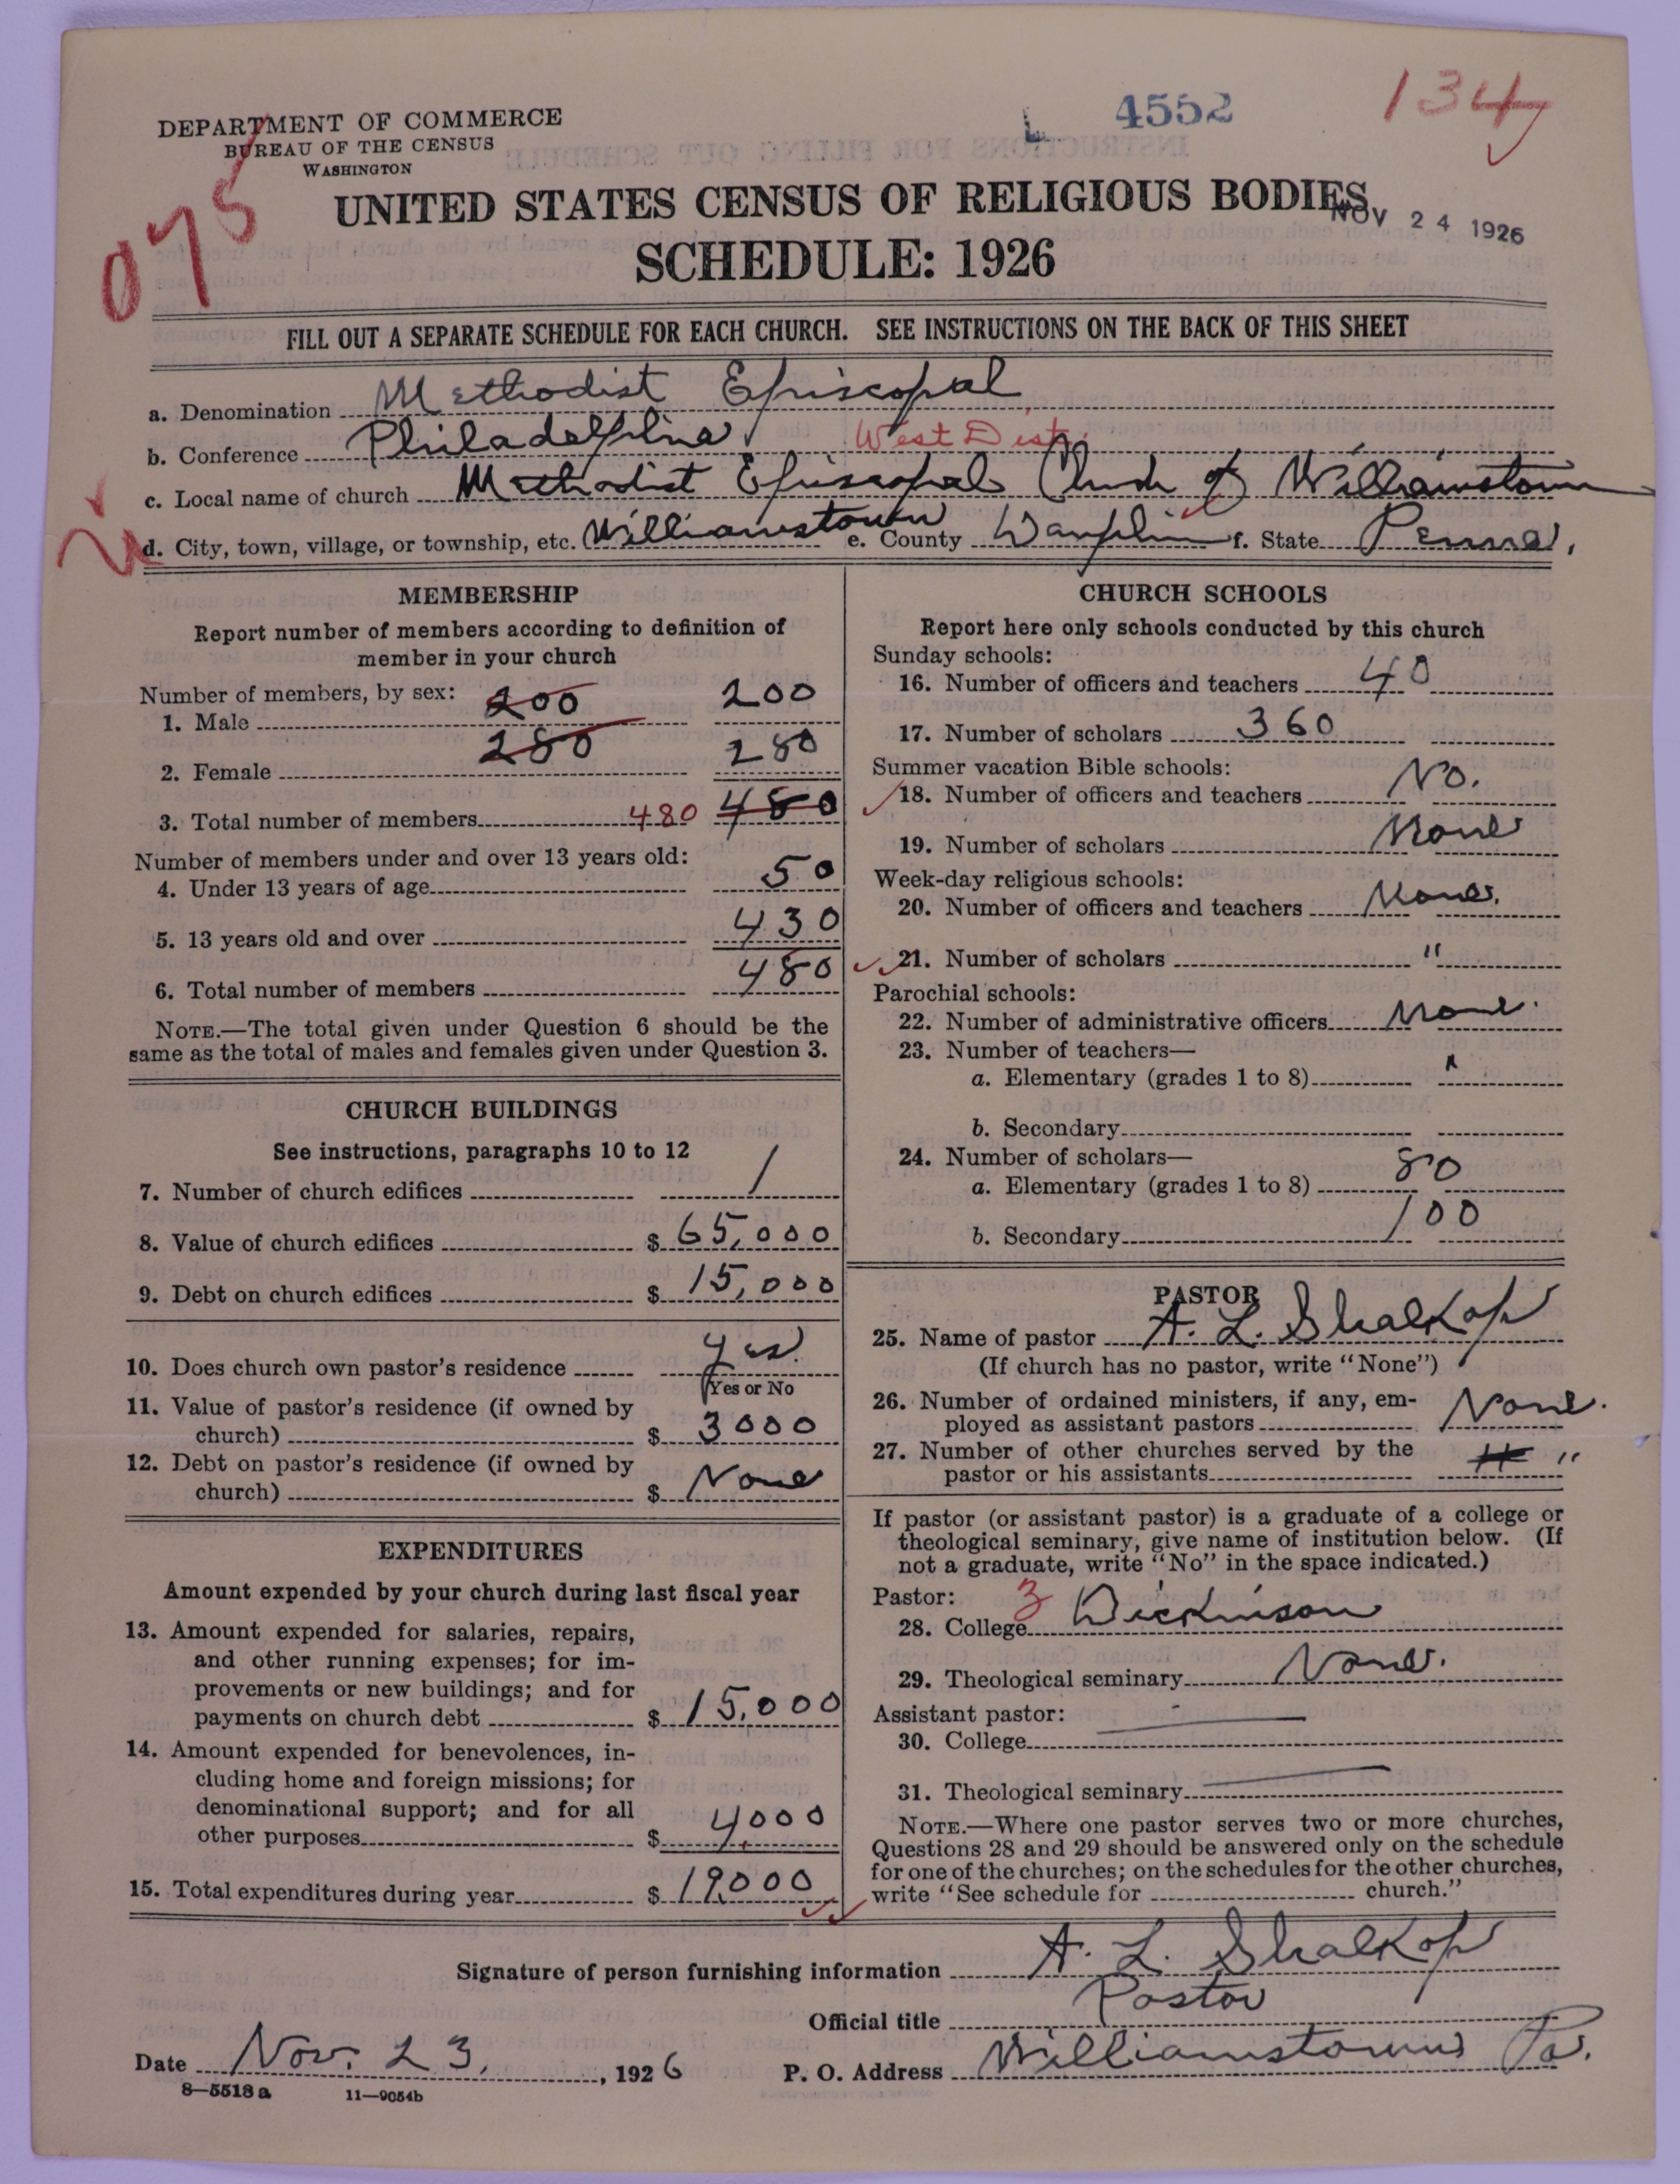 DEPARTMENT OF COMMERCE
BUREAU OF THE CENSUS
WASHINGTON
L 4552
134
075
UNITED STATES CENSUS OF RELIGIOUS BODIES
NOV 24 1926
SCHEDULE: 1926
FILL OUT A SEPARATE SCHEDULE FOR EACH CHURCH. SEE INSTRUCTIONS ON THE BACK OF THIS SHEET
a. Denomination Methodist Episcopal
b. Conference Philadelphia West Dist.
c. Local name of church Methodist Episcopal Church of Williamstown
d. City, town, village, or township, etc. Williamstown e. County Dauphin f. State Penna.
MEMBERSHIP
Report number of members according to definition of
member in your church
Number of members, by sex:
1. Male 200 200
2. Female 280 280
3. Total number of members 480 480
Number of members under and over 13 years old:
4. Under 13 years of age 50
5. 13 years old and over 430
6. Total number of members 480
NOTE.—The total given under Question 6 should be the
same as the total of males and females given under Question 3.
CHURCH BUILDINGS
See instructions, paragraphs 10 to 12
7. Number of church edifices 1
8. Value of church edifices $ 65,000
9. Debt on church edifices $ 15,000
10. Does church own pastor's residence Yes.
(Yes or No
11. Value of pastor's residence (if owned by
church) $ 3000
12. Debt on pastor's residence (if owned by
church) $ None
EXPENDITURES
Amount expended by your church during last fiscal year
13. Amount expended for salaries, repairs,
and other running expenses; for im-
provements or new buildings; and for
payments on church debt $ 15,000
14. Amount expended for benevolences, in-
cluding home and foreign missions; for
denominational support; and for all
other purposes $ 4,000
15. Total expenditures during year $ 19,000
CHURCH SCHOOLS
Report here only schools conducted by this church
Sunday schools:
16. Number of officers and teachers 40
17. Number of scholars 360
Summer vacation Bible schools:
18. Number of officers and teachers No.
19. Number of scholars None
Week-day religious schools:
20. Number of officers and teachers None.
21. Number of scholars "
Parochial schools:
22. Number of administrative officers None.
23. Number of teachers—
a. Elementary (grades 1 to 8) "
b. Secondary
24. Number of scholars—
a. Elementary (grades 1 to 8) 80
b. Secondary 100
PASTOR
25. Name of pastor A. L. Shalkop
(If church has no pastor, write "None")
26. Number of ordained ministers, if any, em-
ployed as assistant pastors None.
27. Number of other churches served by the
pastor or his assistants "
If pastor (or assistant pastor) is a graduate of a college or
theological seminary, give name of institution below. (If
not a graduate, write "No" in the space indicated.)
Pastor: 3
28. College Dickinson
29. Theological seminary None.
Assistant pastor:
30. College
31. Theological seminary
NOTE.—Where one pastor serves two or more churches,
Questions 28 and 29 should be answered only on the schedule
for one of the churches; on the schedules for the other churches,
write "See schedule for church."
Signature of person furnishing information A. L. Shalkop
Official title Pastor
Date Nov. 23, 1926 P. O. Address Williamstown Pa.
8—5518 a 11—9054b